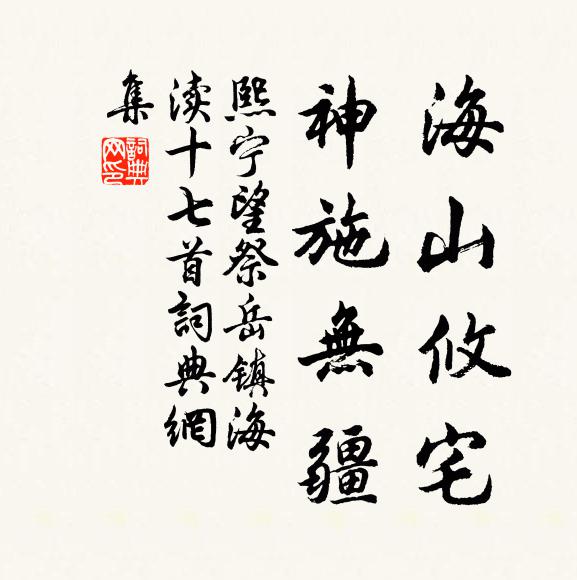 海山攸宅
神施無疆
熙宁望祭岳镇海
渎十七首詞典網
集
詞典網印